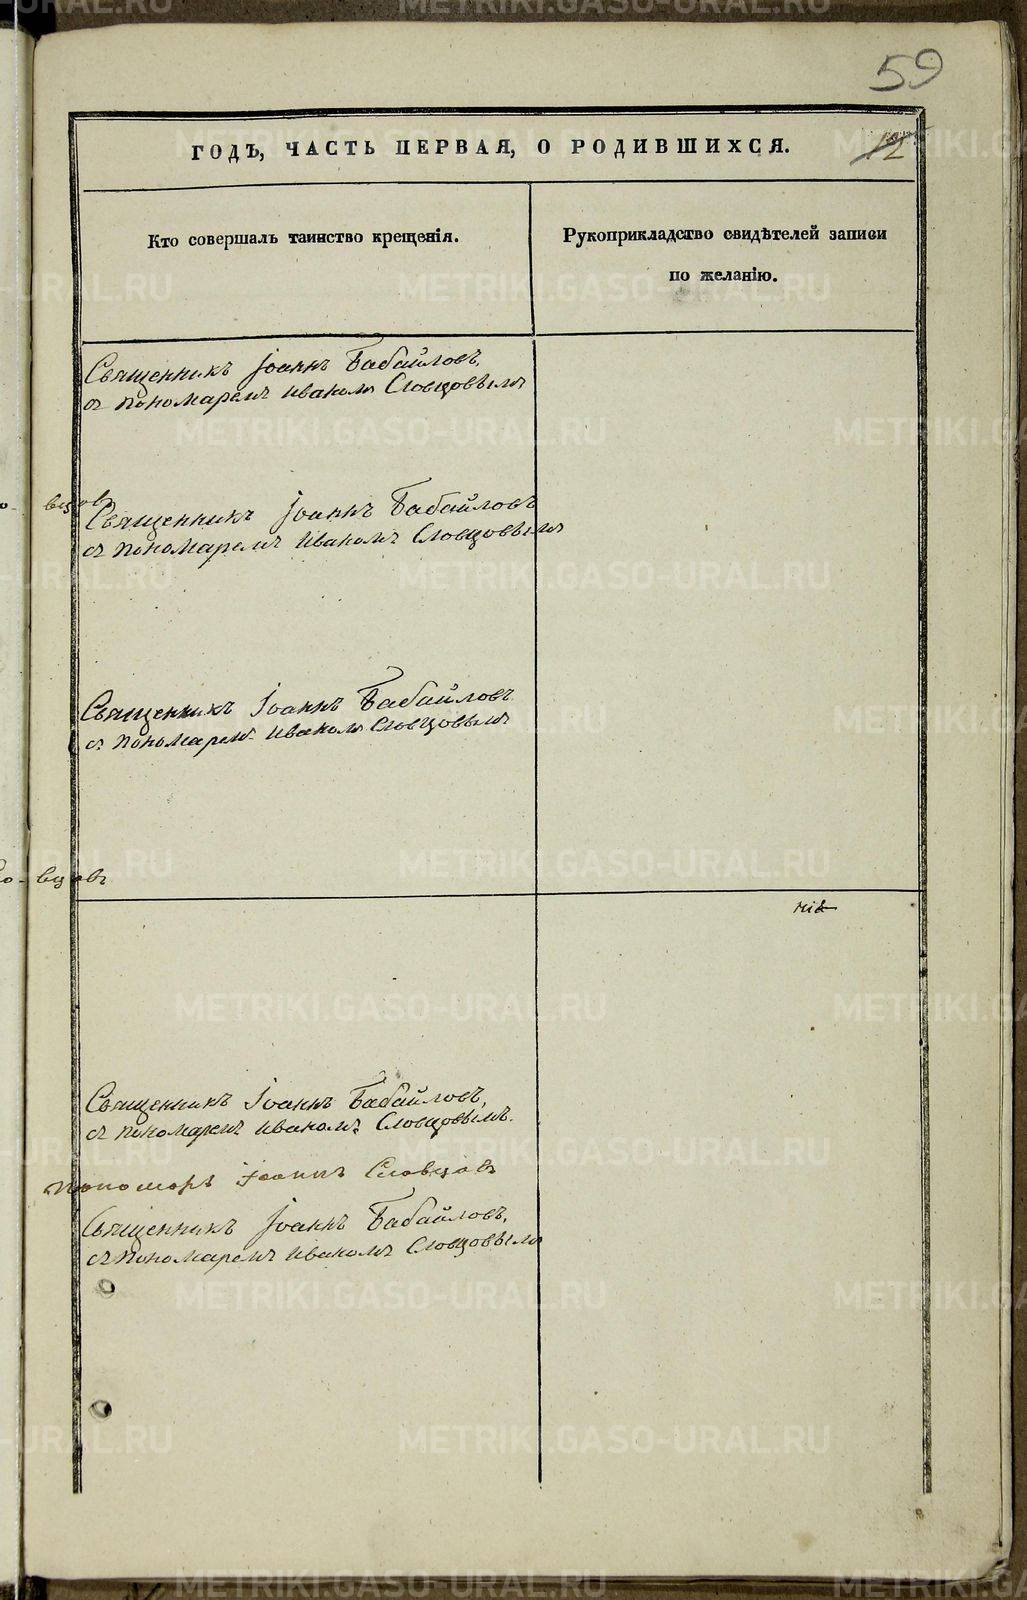 59
ГОДЪ, ЧАСТЬ ПЕРВАЯ, О РОДИВШИХСЯ.
12
Кто совершалъ таинство крещенія.
Рукоприкладство свидѣтелей записи
по желанію.
Священникъ Іоаннъ Бабайловъ,
съ пономаремъ Иваномъ Словцовымъ
вцовъ
Священникъ Іоаннъ Бабайловъ
съ пономаремъ Иваномъ Словцовымъ
Священникъ Іоаннъ Бабайловъ
съ пономаремъ Иваномъ Словцовымъ
вцовъ
Священникъ Іоаннъ Бабайловъ,
съ пономаремъ Иваномъ Словцовымъ.
пономарь Іоаннъ Словцовъ
Священникъ Іоаннъ Бабайловъ,
съ пономаремъ Иваномъ Словцовымъ
METRIKI.GASO-URAL.RU